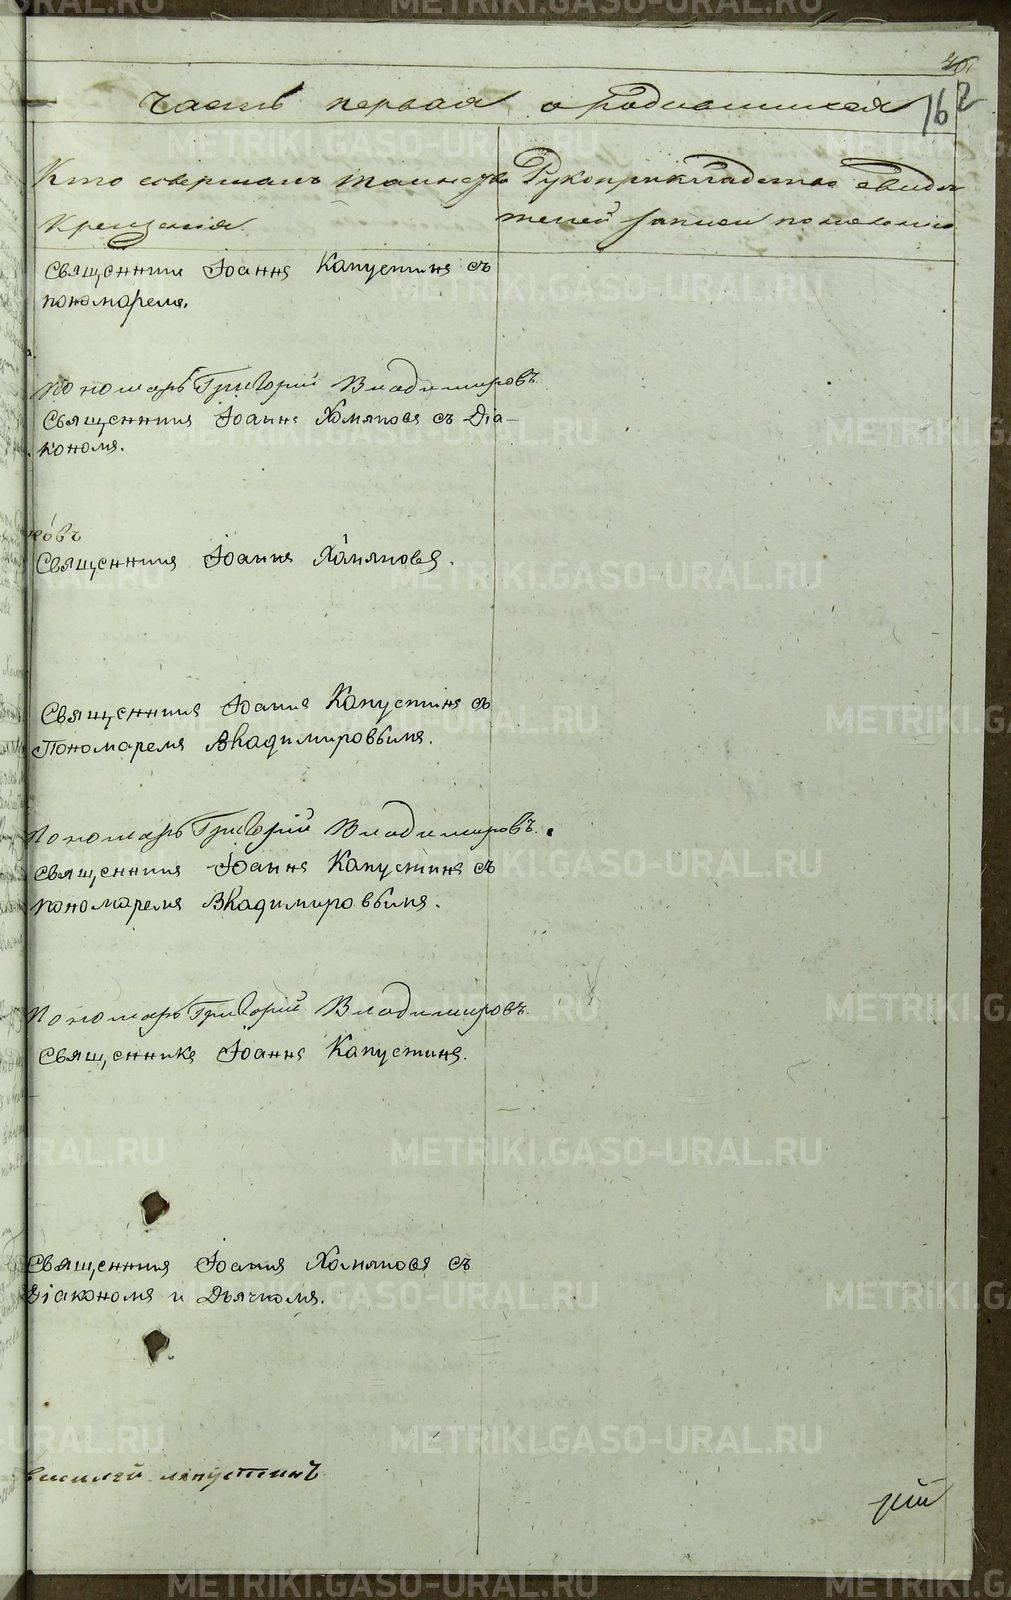 162
Часть первая о родившихся
Кто совершалъ таинство
крещенія.
Рукоприкладство свидѣ-
телей записи по желанію
Священникъ Іоаннъ Капустинъ съ
пономаремъ.
Пономарь Григорій Владимировъ
Священникъ Іоаннъ Хомяковъ съ Діа-
кономъ.
ковъ
Священникъ Іоаннъ Хомяковъ.
Священникъ Іоаннъ Капустинъ съ
Пономаремъ Владимировымъ.
Пономарь Григорій Владимировъ.
Священникъ Іоаннъ Капустинъ съ
пономаремъ Владимировымъ.
Пономарь Григорій Владимировъ.
Священникъ Іоаннъ Капустинъ.
Священникъ Іоаннъ Хомяковъ съ
Діакономъ и Дьячкомъ.
METRIKI.GASO-URAL.RU